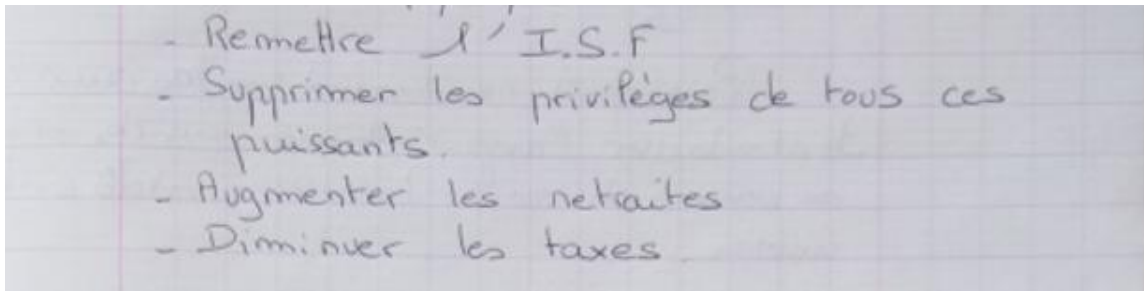 - Remettre l'I.S.F
- Supprimer les privilèges de tous ces
puissants.
- Augmenter les retraites
- Diminuer les taxes